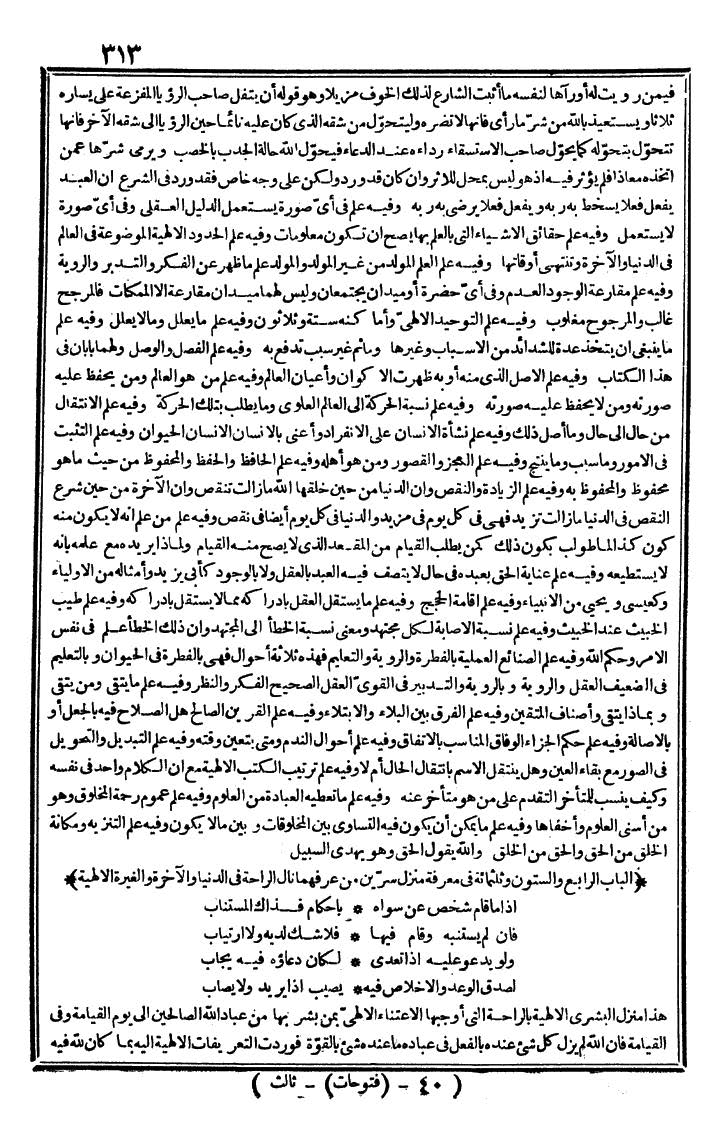 ٣١٣
فيمن رؤيت له أورآها لنفسه ما أثبت الشارع لذلك الخوف مزيلا وهو قوله أن يتفل صاحب الرؤيا المفزعة على يساره
ثلاثا ويستعيذ بالله من شرّ ما رأى فانها لا تضره وليتحوّل من شقه الذى كان عليه نائما حين الرؤيا الى شقه الآخر فانها
تتحوّل بتحوّله كما يحوّل صاحب الاستسقاء رداءه عند الدعاء فيحوّل الله حالة الجدب بالخصب ويرمى شرّها عمن
اتخذه معاذا فلم يؤثر فيه اذ هو ليس بمحل للاثر وان كان قد ورد ولكن على وجه خاص فقد ورد فى الشرع ان العبد
يفعل فعلا يسخط به ربه ويفعل فعلا يرضى به ربه وفيه علم فى أىّ صورة يستعمل الدليل العقلى وفى أىّ صورة
لا يستعمل وفيه علم حقائق الاشياء التى بالعلم بها يصح ان تكون معلومات وفيه علم الحدود الالهية الموضوعة فى العالم
فى الدنيا والآخرة وتنتهى أوقاتها وفيه علم العلم المولد من غير المولد والمولد علم ما ظهر عن الفكر والتدبر والروية
وفيه علم مقارعة الوجود العدم وفى أىّ حضرة أو ميدان يجتمعان وليس لهما ميدان مقارعة الا الممكنات فالمرجح
غالب والمرجوح مغلوب وفيه علم التوحيد الالهىّ وأما كنه ستة وثلاثون وفيه علم ما يعلل وما لا يعلل وفيه علم
ما ينبغى ان يتخذ عدة للشدائد من الاسباب وغيرها وما ثم غير سبب تدفع به وفيه علم الفصل والوصل ولهما بابان فى
هذا الكتاب وفيه علم الاصل الذى منه أو به ظهرت الاكوان وأعيان العالم وفيه علم من هو العالم ومن يحفظ عليه
صورته ومن لا يحفظ عليه صورته وفيه علم نسبة الحركة الى العالم العلوى وما يطلب بتلك الحركة وفيه علم الانتقال
من حال الى حال وما أصل ذلك وفيه علم نشأة الانسان على الانفراد وأعنى بالانسان الانسان الحيوان وفيه علم التثبت
فى الامور وما سبب وما ينتج وفيه علم العجز والقصور ومن هو أهله وفيه علم الحافظ والحفظ والمحفوظ من حيث ما هو
محفوظ والمحفوظ به وفيه علم الزيادة والنقص وان الدنيا من حين خلقها الله ما زالت تنقص وان الآخرة من حين شرع
النقص فى الدنيا ما زالت تزيد فهى فى كل يوم فى مزيد والدنيا فى كل يوم أيضا فى نقص وفيه علم من علم انه لا يكون منه
كون كذا المطلوب بكون ذلك كمن يطلب القيام من المقعد الذى لا يصح منه القيام ولماذا يريده مع علمه بانه
لا يستطيعه وفيه علم عناية الحق بعبده فى حال لا يتصف فيه العبد بالعقل ولا بالوجود كأبى يزيد وأمثاله من الاولياء
وكعيسى ويحيى من الانبياء وفيه علم اقامة الحجج وفيه علم ما يستقل العقل بادراكه مما لا يستقل بادراكه وفيه علم طيب
الخبيث عند الخبيث وفيه علم نسبة الاصابة لكل مجتهد ومعنى نسبة الخطأ الى المجتهد وان ذلك الخطأ علم فى نفس
الامر وحكم الله وفيه علم الصنائع العملية بالفطرة والروية والتعليم فهذه ثلاثة أحوال فهى بالفطرة فى الحيوان وبالتعليم
فى الضعيف العقل والروية وبالروية والتدبير فى القوىّ العقل الصحيح الفكر والنظر وفيه علم ما يتقى ومن يتقى
وبماذا يتقى وأصناف المتقين وفيه علم الفرق بين البلاء والابتلاء وفيه علم القرين الصالح هل الصلاح فيه بالجعل أو
بالاصالة وفيه علم حكم الجزاء الوفاق المناسب بالاتفاق وفيه علم أحوال الندم ومتى يتعين وقته وفيه علم التبديل والتحويل
فى الصور مع بقاء العين وهل ينتقل الاسم بانتقال الحال أم لا وفيه علم ترتيب الكتب الالهية مع ان الكلام واحد فى نفسه
وكيف ينسب للمتأخر التقدم على من هو متأخر عنه وفيه علم ما تعطيه العبادة من العلوم وفيه علم عموم رحمة المخلوق وهو
من أسنى العلوم وأخفاها وفيه علم ما يمكن أن يكون فيه التساوى بين المخلوقات وبين ما لا يكون وفيه علم التنزيه ومكانة
الخلق من الحق والحق من الخلق والله يقول الحق وهو يهدى السبيل
﴿الباب الرابع والستون وثلثمائة فى معرفة منزل سرّين من عرفهما نال الراحة فى الدنيا والآخرة والغيرة الالهية﴾
اذا ما قام شخص عن سواه * باحكام فذاك المستناب
فان لم يستنبه وقام فيها * فلا شك لديه ولا ارتياب
ولو يدعو عليه اذا تعدى * لكان دعاؤه فيه يجاب
لصدق الوعد والاخلاص فيه * يصيب اذا يريد ولا يصاب
هذا منزل البشرى الالهية بالراحة التى أوجبها الاعتناء الالهىّ بمن بشر بها من عباد الله الصالحين الى يوم القيامة وفى
القيامة فان الله لم يزل كل شئ عنده بالفعل فى عباده ما عنده شئ بالقوّة فوردت التعريفات الالهية اليه بما كان لله فيه
( ٤٠ - (فتوحات) - ثالث )